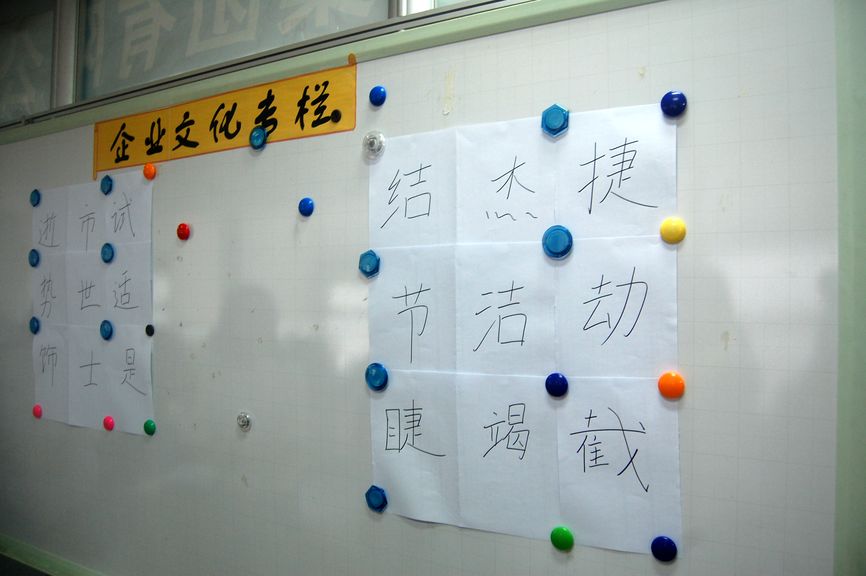 集团有
企业文化专栏
逝市试
势世适
饰士是
结杰捷
节洁劫
睫竭截